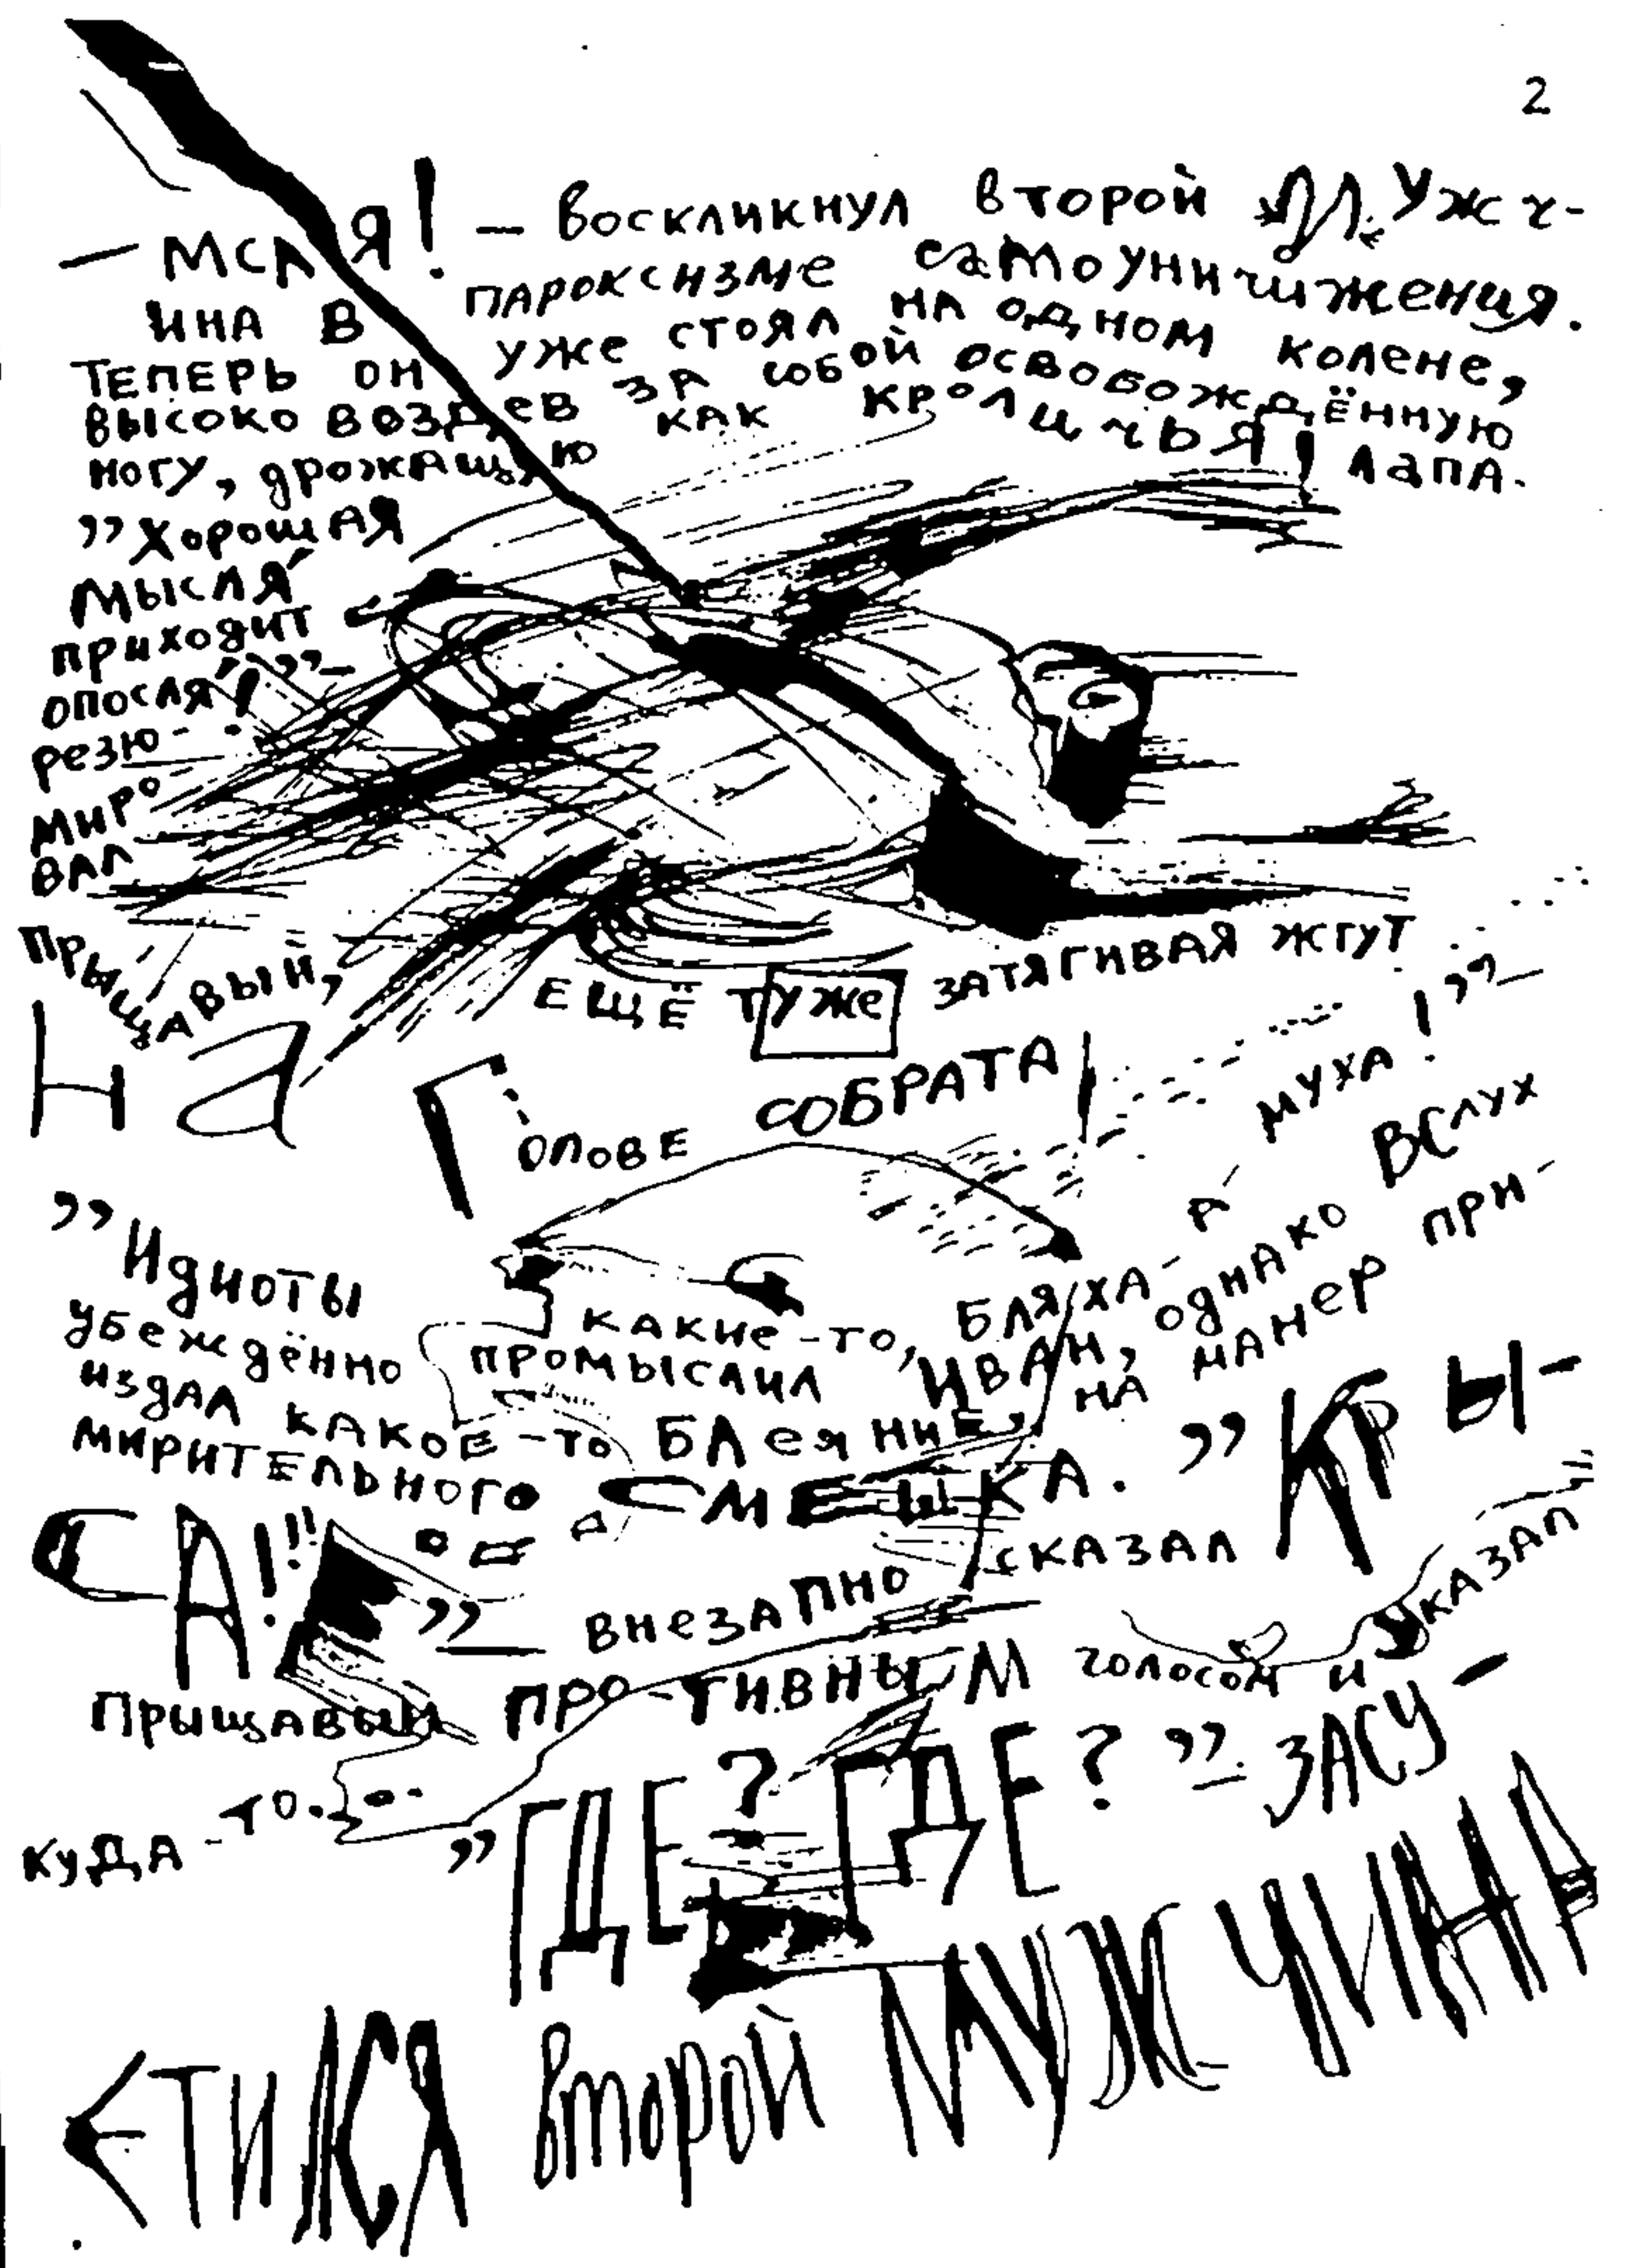 2
— МСЛЯ! — воскликнул второй Мужч-
ина в пароксизме самоуничижения.
Теперь он уже стоял на одном колене,
высоко воздев за собой освобождённую
ногу, дрожащую как кроличья! лапа.
„Хорошая
мысля́
приходит
опосля́!”—
резю-
миро
вал
прыщавый,
ещё туже затягивая жгут
на голове собрата!
„Идиоты какие-то, бляха-р муха!”—
убеждённо промыслил Иван, однако вслух
издал какое-то блеяние, на манер при-
мирительного смешка. „КРЫ-
СА!!!” — внезапно сказал
Прыщавый про-тивным голосом и указал
куда-то... „ГДЕ? ГДЕ?”— ЗАСУ-
ЕТИЛСЯ второй МУЖЧИНА